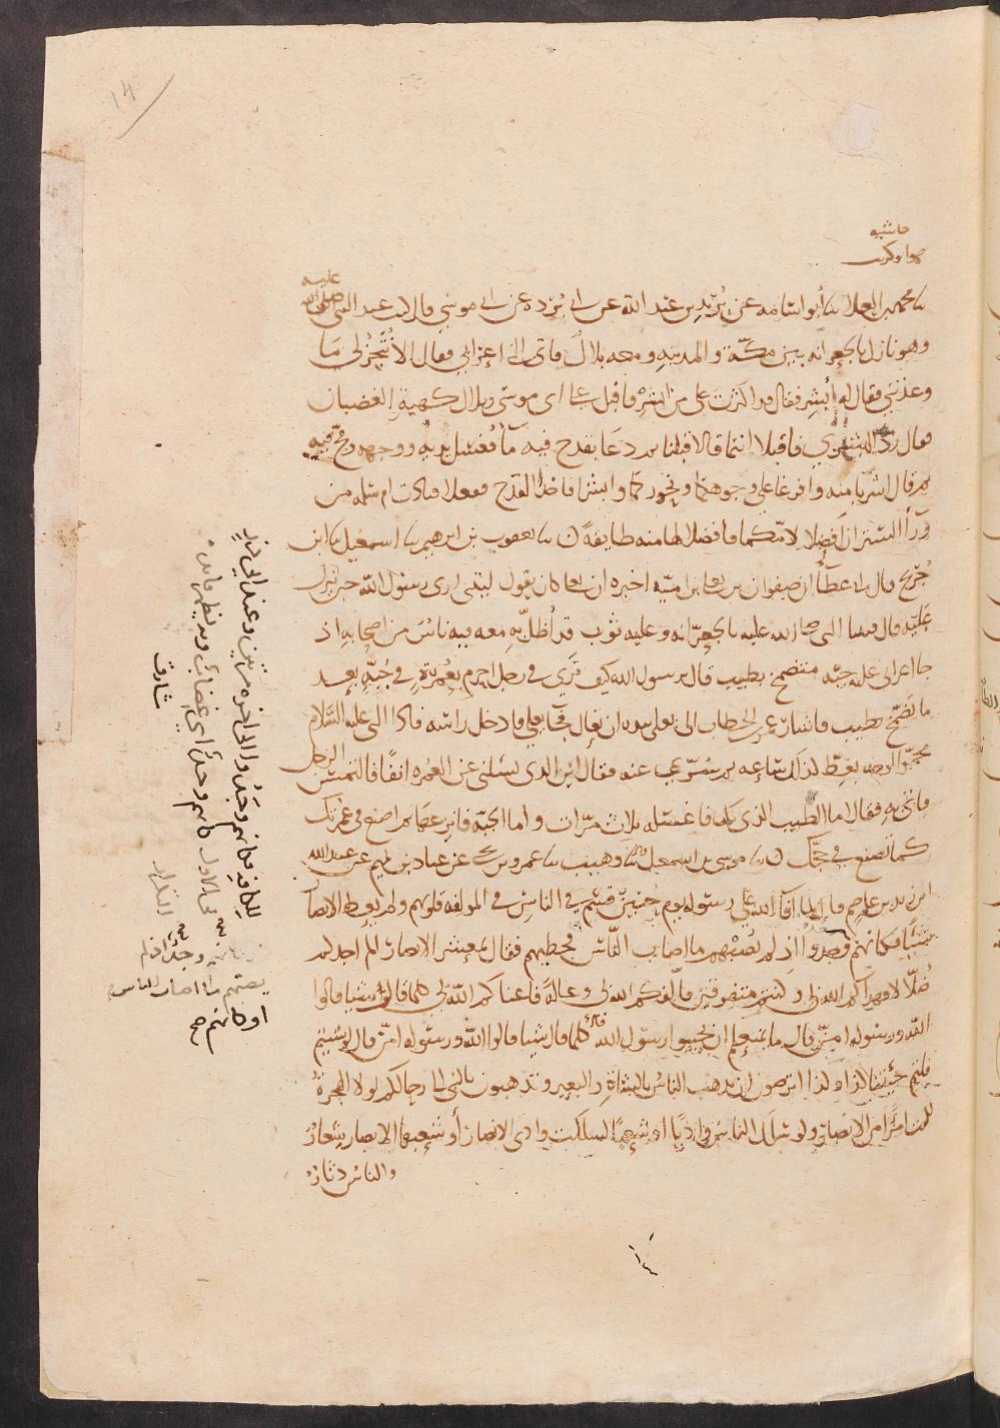 حاشية
نا محمد بن العلا نا أبو اسامه عن بُرَيْدِ بن عبد الله عن ابي بُرده عن ابي موسى قال كنت عند النبي صلى الله عليه
وهو نازل بالجعرانه بين مكّة والمدينهِ ومعه بلالٌ فاتى النبي اعرابي فقال الا تُنْجِزُ لي مَا
وعدتني فقال له أبْشِر فقال قد اكثرتَ علي من ابشرْ فاقبل على ابي موسى وبلال كهيةِ الغضبان
فقال ردّ البُشْرى فاقبلا انتما قالا قبلنا ثم دعَا بقدح فيه مآ فغسل يديْهِ ووجهه ومجّ فيه
ثم قال اشربَا منه وافرغا على وجوهكما ونحوركما وابشرا فاخذا القدح ففعلا فنادت ام سلمه من
ورآ الستر ان أفضِلا لامّكما فافضلا لها منه طايفةً ن نا يعقوب بن ابرهيم نا اسمعيل نا ابن
جُرَيج قال نا عطآ ان صفوان بن يعلى بن اميّه اخبره ان يعلى كان يقول ليتني ارى رسول الله حين يُنزل
عليه قال فبينا النبي صلى الله عليه بالجعِرّانه وعليه ثوب قد أُظل بهِ معه فيه ناسٌ من اصحابهِ اذ
جا اعرابي عليه جبّه متضمخ بطيب قال يرسول الله كيف تَرَى في رجل احرم بعُمرةٍ في جُبّةٍ بعد
ما تضمّخ بطيب فاشارَ عمر بن الخطاب الى يعلى بيده ان تعال فجا يعلى فادخل راسَه فاذا النبي عليه السّلام
محمرّ الوجه يغِطّ كذلك ساعه ثم سُرّي عنه فقال اين الذي يسلني عن العُمره انفًا فالتمس الرجل
فاتى بهِ فقال اما الطيب الذي بك فاغسله ثلاث مرّات واما الجبّة فانزعها ثم اصنع في عُمرتك
كما تصنع في حجّك ن نا موسى بن اسمعيل نا وهيب نا عمرو بن يحيى عن عباد بن تميم عن عبد الله
ابن زيد بن عاصم قال لما افآ الله على رسوله يوم حُنَينٍ قسّم في الناس في المولفه قلوبهم ولم يعطِ الانصارَ
شيًا فكانهم وجدوا اذ لم يُصِبْهم ما اصاب النّاسَ فخطبهم فقال يمعشر الانصار الم اجدكم
ضُلّالا فهداكم الله بي وكنتم متفرقين فالّفكم الله بي وعالةً فاغناكم الله بي كلما قال شيا قالوا
الله ورسوله امَنّ قال ما يمنعكم ان تجيبوا رسول الله قال كلما قال شيا قالوا الله ورسوله امنّ قال لو شيتم
قلتم جئتنا كذا وكذا اترضون ان يذهب الناس بالشاةِ والبعير وتذهبون بالنبي الى رحالكم لولا الهجرةُ
لكنت امرًا من الانصار ولو سَلَكَ الناسُ وادِيًا او شِعبًا لسلكت وادي الانصار أو شعبها الانصار شِعارٌ
والناسُ دِثارٌ
اذ لم
يصبهم ما اصاب الناس
او كانهم صح